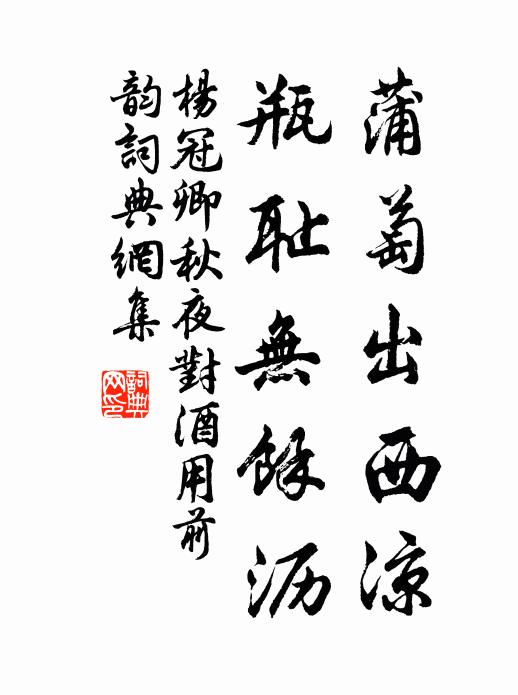 蒲萄出西涼
瓶耻無餘沥
楊冠卿秋夜對酒用前
韵詞典網集
詞典网印